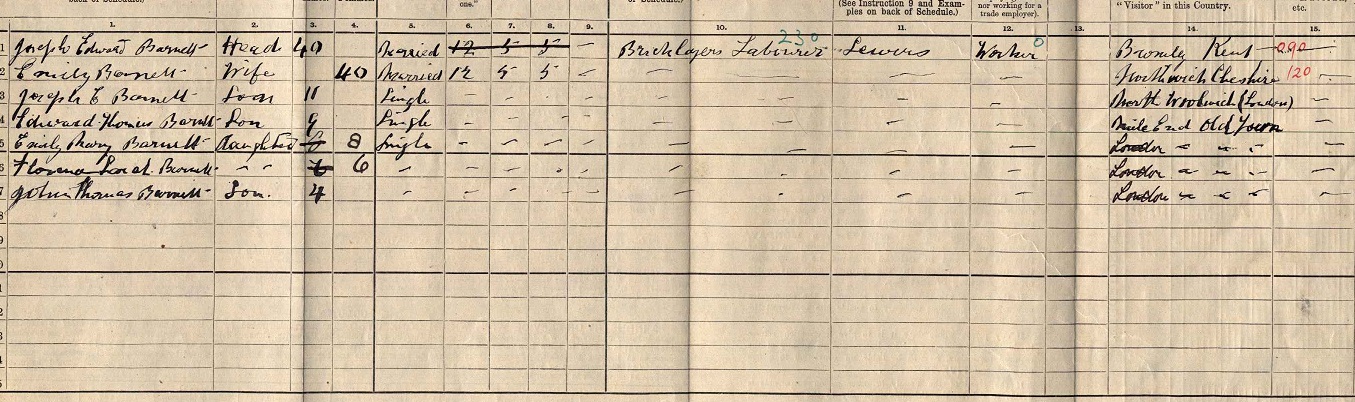 back of Schedule.) one." of Schedule.) (See Instruction 9 and Exam- nor working for a "Visitor" in this Country. etc.
ples on back of Schedule.) trade employer).
1. 2. 3. 4. 5. 6. 7. 8. 9. 10. 11. 12. 13. 14. 15.
1 Joseph Edward Barnett Head 40 Married 12 5 5 – Bricklayers Labourer 230 Sewers Worker 0 Bromley Kent 090
2 Emily Barnett Wife 40 Married 12 5 5 – – – – Northwich Cheshire 120 –
3 Joseph E Barnett Son 11 Single – – – – – – – North Woolwich (London) –
4 Edward Thomas Barnett Son 9 Single – – – – – – – Mile End Old Town –
5 Emily Mary Barnett daughter 8 Single – – – – – – – London " " "
6 Florence Barnett " " 6 – – – – – – – – London " " " –
7 John Thomas Barnett Son. 4 – – – – – – – – London " " " –
8
9
0
1
2
3
4
5